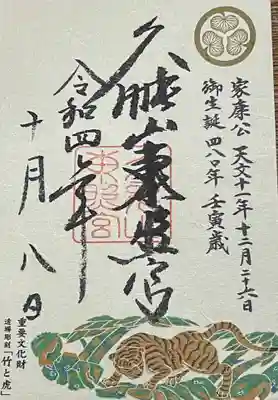 家康公 天文十一年十二月二十六日
御生誕四八〇年 壬寅歳
久能山東照宮
令和四年
十月八日
重要文化財
透塀彫刻「竹と虎」